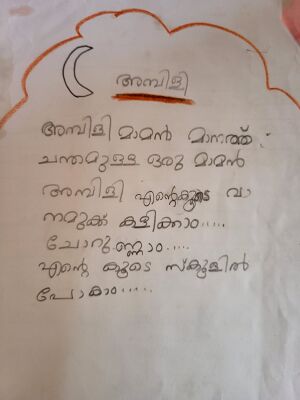 അമ്പിളി
അമ്പിളി മാമൻ മാനത്ത്
ചന്തമുള്ള ഒരു മാമൻ
അമ്പിളി എന്റെകൂടെ വാ
നമുക്ക് കളിക്കാം.....
ചോറുണ്ണാം.....
എന്റെ കൂടെ സ്കൂളിൽ
പോകാം.....